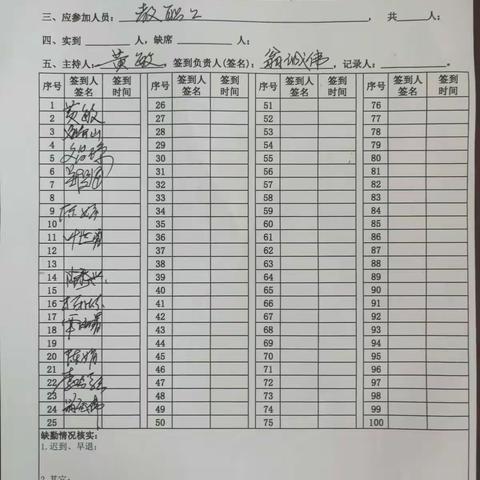 三、应参加人员：教职工，共___人；
四、实到___人，缺席___人；
五、主持人：黄敏，签到负责人(签名)：翁诚伟，记录人：___。
序号 签到人签名 签到时间 序号 签到人签名 签到时间 序号 签到人签名 签到时间 序号 签到人签名 签到时间
1 黄敏 26 51 76
2 27 52 77
3 28 53 78
4 29 54 79
5 30 55 80
6 31 56 81
7 32 57 82
8 33 58 83
9 34 59 84
10 35 60 85
11 36 61 86
12 37 62 87
13 38 63 88
14 39 64 89
15 40 65 90
16 41 66 91
17 42 67 92
18 43 68 93
19 44 69 94
20 45 70 95
21 46 71 96
22 47 72 97
23 48 73 98
24 49 74 99
25 50 75 100
缺勤情况核实：
1.迟到、早退：
2.其它：